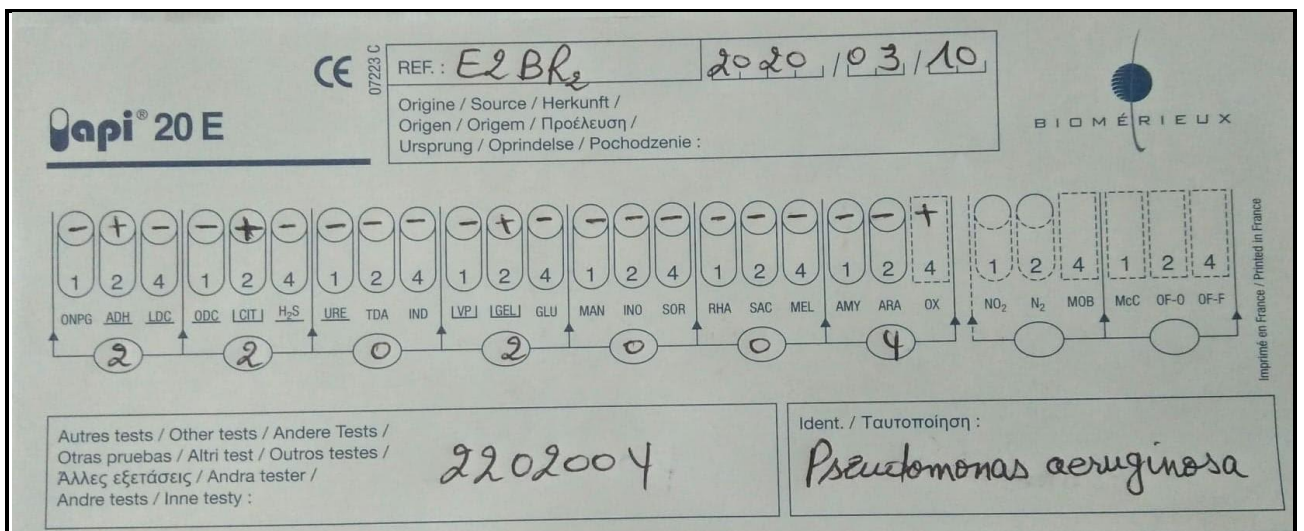 CE 07223 C REF. : E2 BR2 2020 / 03 / 10
Origine / Source / Herkunft /
Origen / Origem / Προέλευση /
Ursprung / Oprindelse / Pochodzenie :
api® 20 E
BIOMÉRIEUX
− + − − + − − − − − + − − − − − − − − − +
1 2 4 1 2 4 1 2 4 1 2 4 1 2 4 1 2 4 1 2 4 1 2 4 1 2 4
ONPG ADH LDC ODC CIT H2S URE TDA IND VP GEL GLU MAN INO SOR RHA SAC MEL AMY ARA OX NO2 N2 MOB McC OF-O OF-F
2 2 0 2 0 0 4
Imprimé en France / Printed in France
Autres tests / Other tests / Andere Tests /
Otras pruebas / Altri test / Outros testes /
Άλλες εξετάσεις / Andra tester /
Andre tests / Inne testy :
2202004
Ident. / Ταυτοποίηση :
Pseudomonas aeruginosa